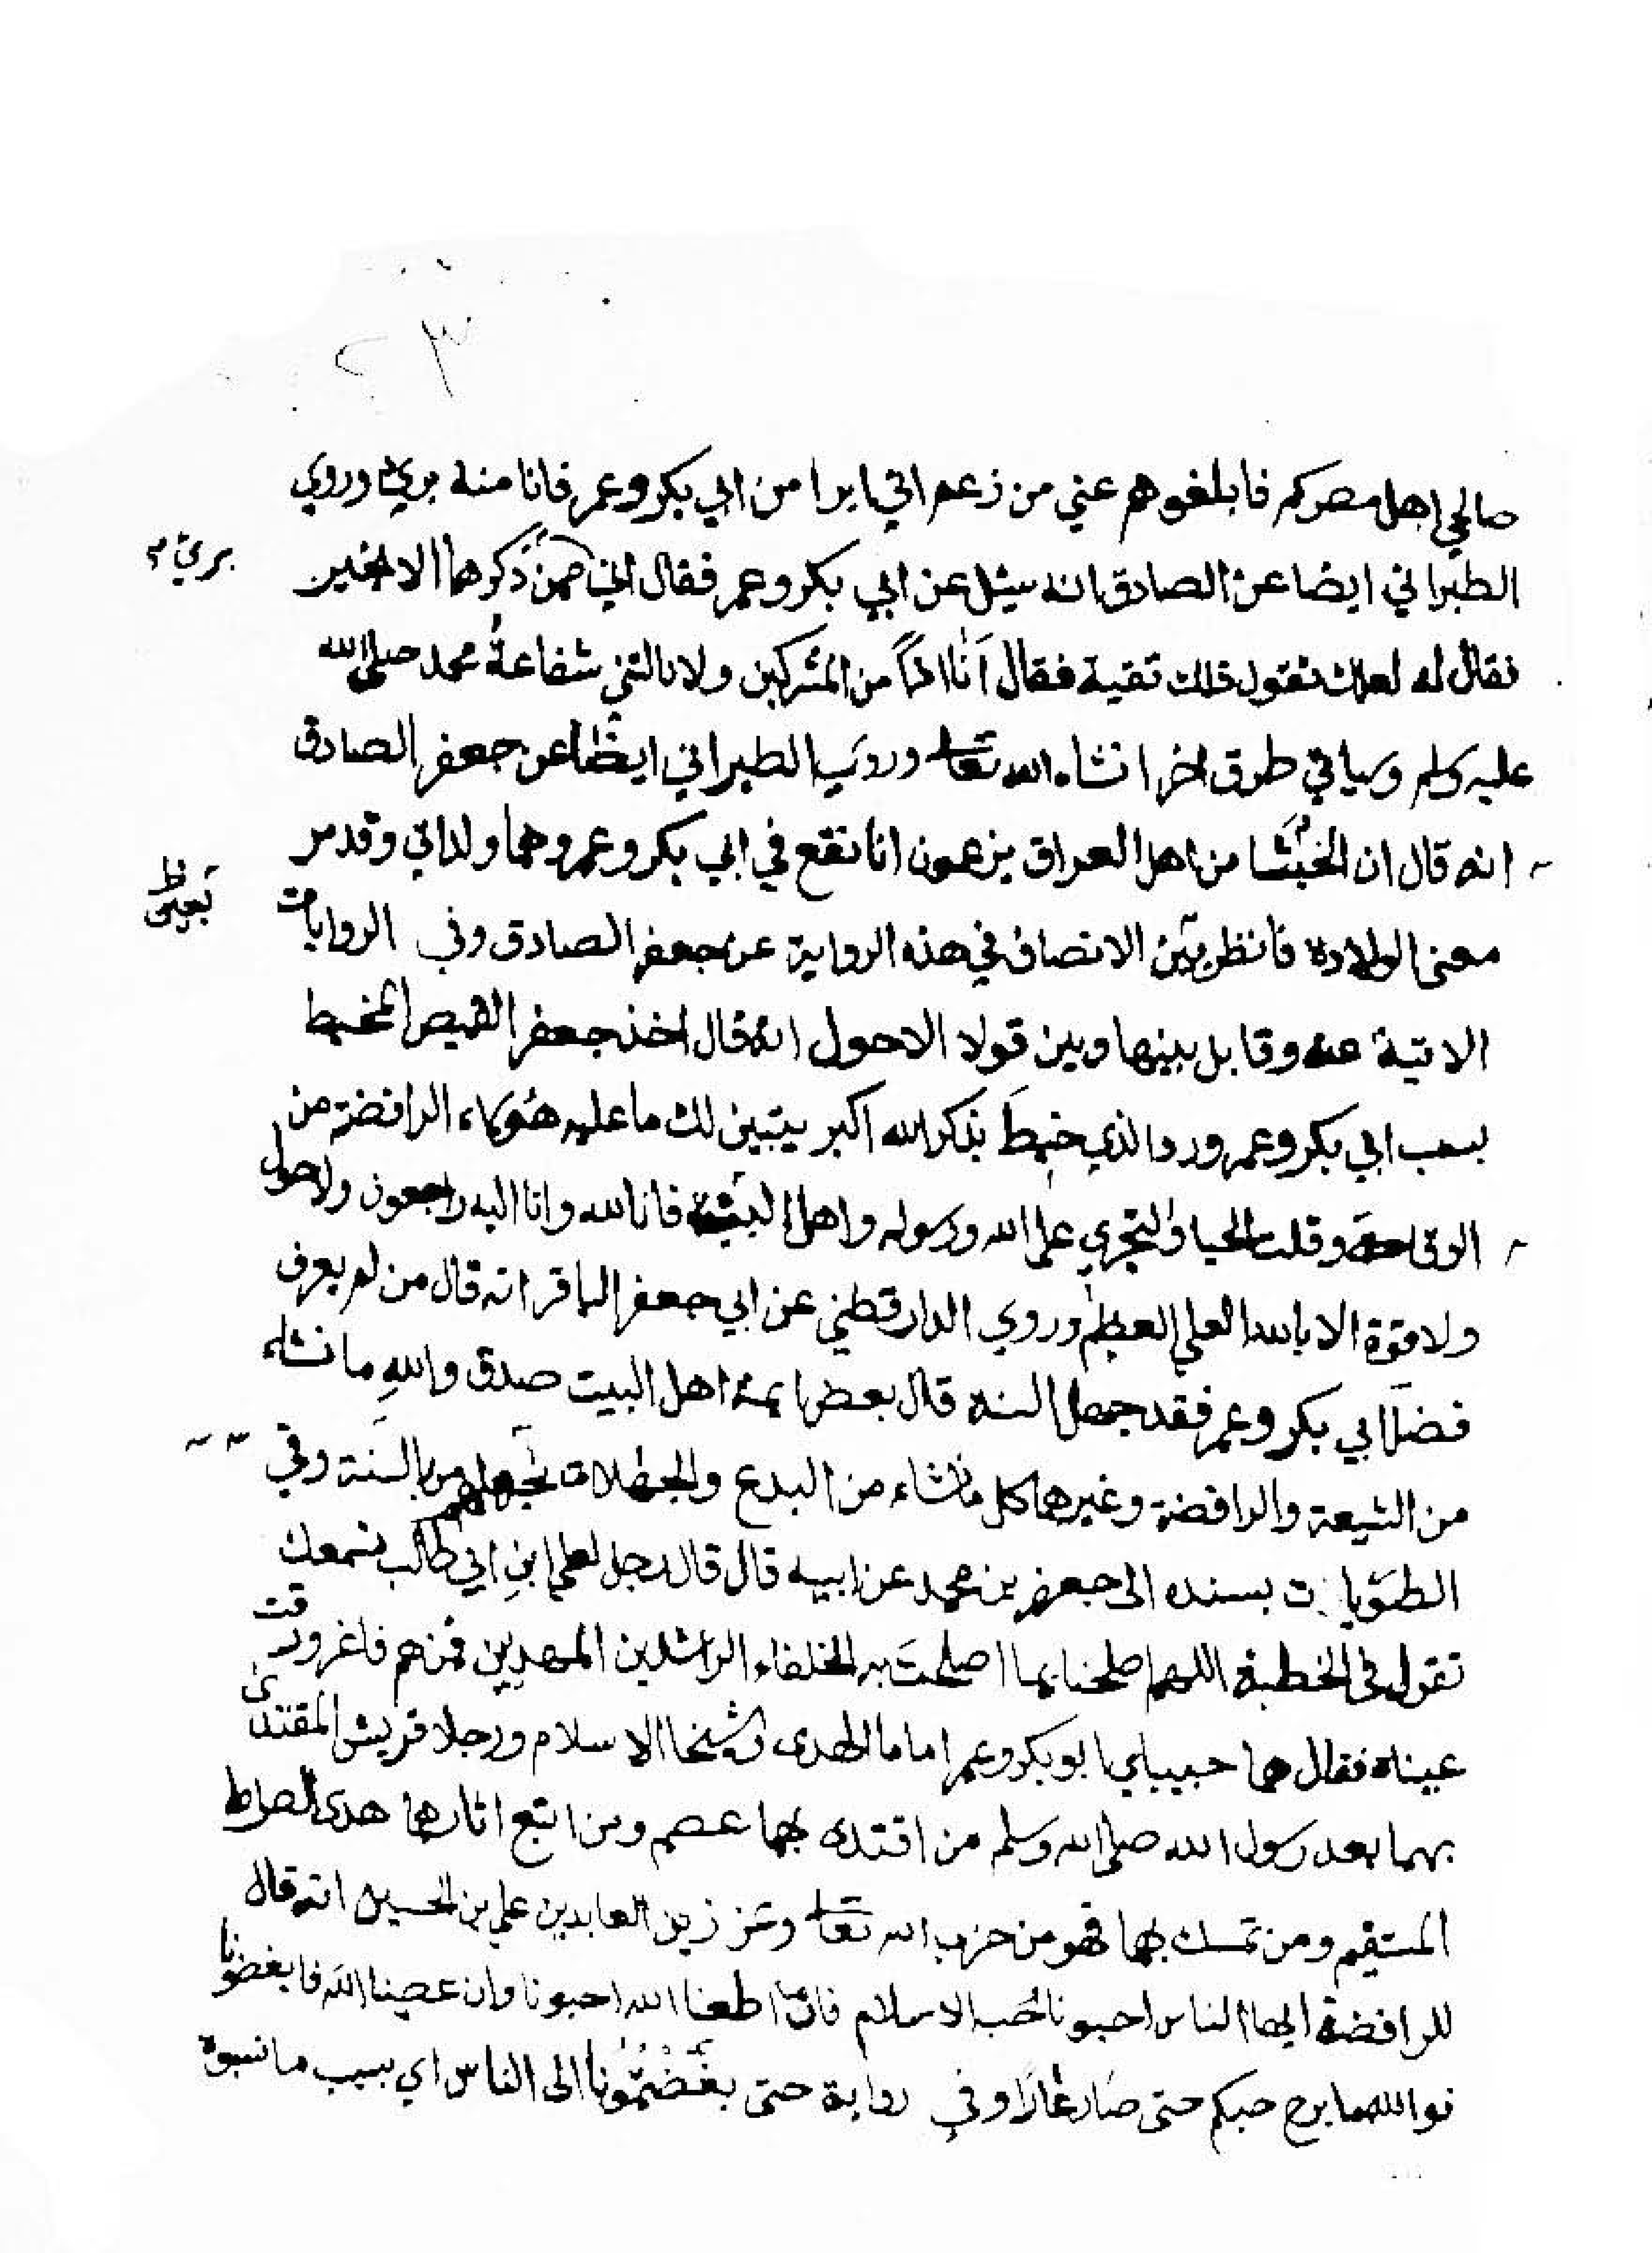 ٢٣
صالحي اهل مصركم فابلغوهم عني من زعم اني ابرا من ابي بكر وعمر فانا منه بريء وروي
بريء م
الطبراني ايضا عن الصادق انه سيئل عن ابي بكر وعمر فقال اني ممن ذكرهما الا بخير
فقال له لعلك تقول ذلك تقية فقال أنا اذاً من المشركين ولا نالتني شفاعة محمد صلى الله
عليه وسلم وسياتي طرق اخر انشاء الله تعالى وروي الطبراني ايضا عن جعفر الصادق
انه قال ان الخبثا من اهل العراق يزعمون انا نقع في ابي بكر وعمر وهما والداي وقد مر
معنى الولادة فانظر بعين الانصاف في هذه الرواية عن جعفر الصادق وفي الروايات
بعين ط
الاتية عنه وقابل بينها وبين قول الاحول انه قال اخذ جعفر القميص المخيط
بسب ابي بكر وعمر ورد الذي خيط بذكر الله اكبر يتبين لك ما عليه هؤلاء الرافضة من
الوقاحة وقلت الحيا والتجري على الله ورسوله واهل البيت فانا لله وانا اليه راجعون ولا حول
ولا قوة الا بالله العلي العظيم وروي الدارقطني عن ابي جعفر الباقر انه قال من لم يعرف
فضل ابي بكر وعمر فقد جهل السنة قال بعض ايمة اهل البيت صدق والله ما نشاء
من الشيعة والرافضة وغيرهما كل ما نشاء من البدع والجهلات لجهلهم بالسنة وفي
الطيوريات بسنده الى جعفر بن محمد عن ابيه قال قال رجل لعلي ابن ابي طالب نسمعك
تقول في الخطبة اللهم اصلحنا بما اصلحت به الخلفاء الراشدين المهديين فمن هم فاغرورقت
عيناه فقال هما حبيباي ابو بكر وعمر اماما الهدى وشيخا الاسلام ورجلا قريش المقتدى
بهما بعد رسول الله صلى الله وسلم من اقتدى بهما عصم ومن اتبع اثارهما هدى الصراط
المستقيم ومن تمسك بهما فهو من حزب الله تعالى وعن زين العابدين علي بن الحسين انه قال
للرافضة ايها الناس احبونا حب الاسلام فان اطعنا الله احبونا وان عصينا الله فابغضونا
فوالله ما برح حبكم حتى صار عارا وفي رواية حتى بغضتمونا الى الناس اي بسبب ما نسبوه